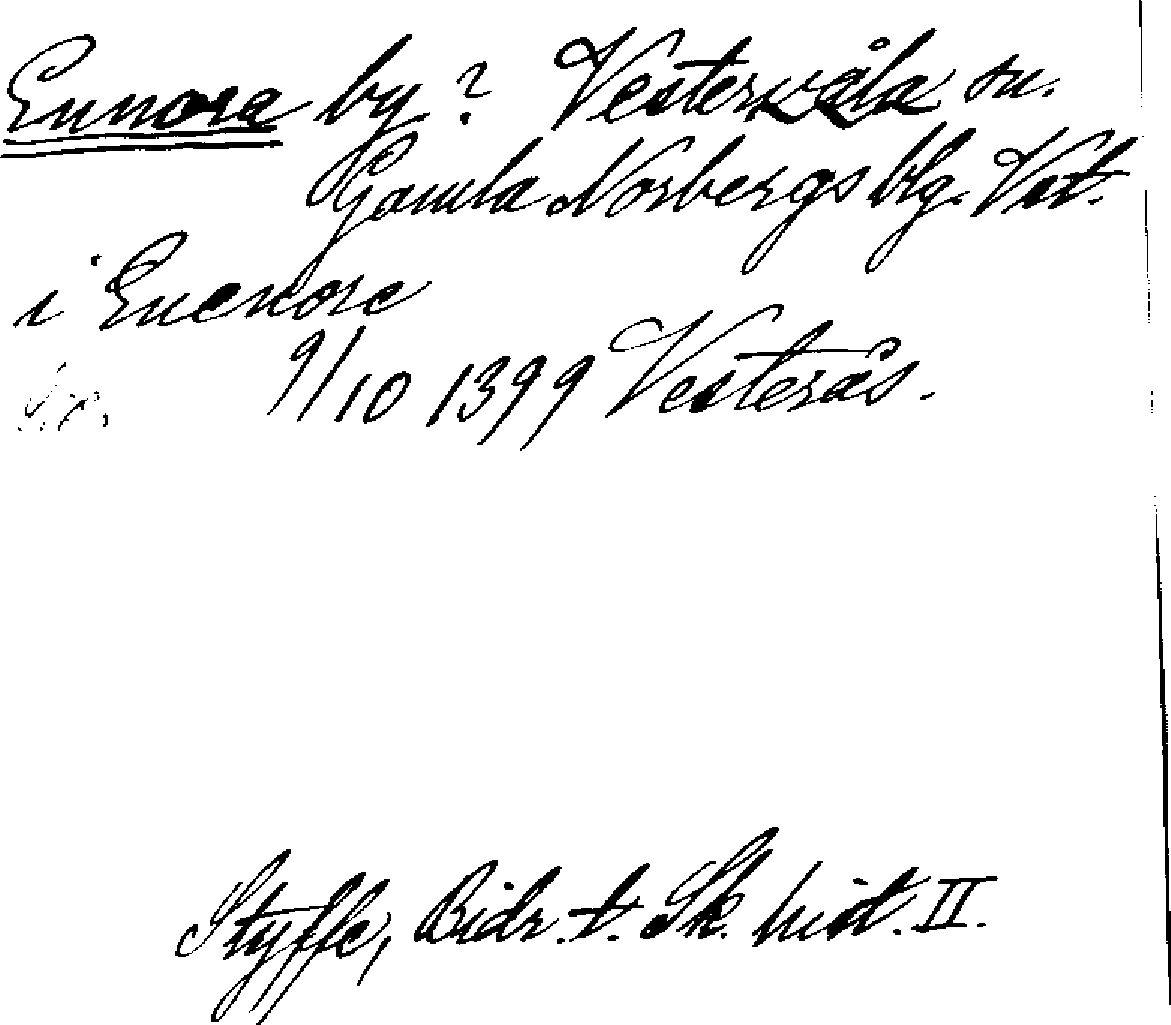 Ennora by? Vestervåla sn.
Gamla Norbergs blg. Vst.
i Enenore
9/10 1399 Vesterås.
Styffe, Bidr. t. Sk. hist. II.